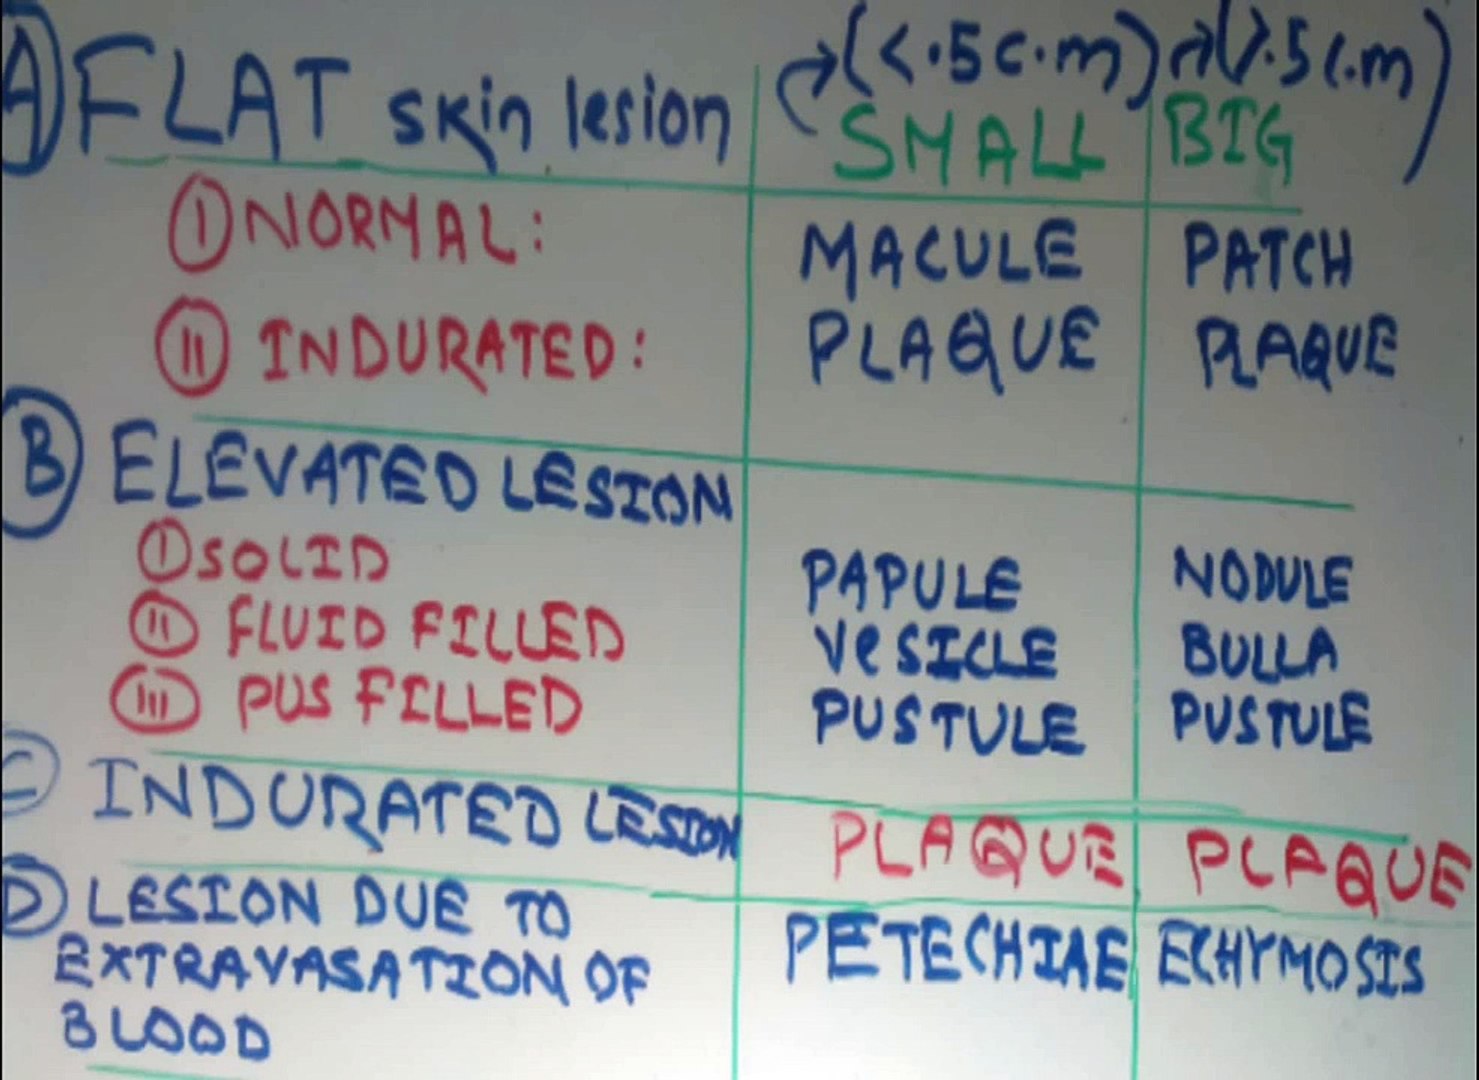 (A) FLAT skin lesion → (<.5 c.m) SMALL → (>.5 c.m) BIG
(I) NORMAL: MACULE PATCH
(II) INDURATED: PLAQUE PLAQUE
(B) ELEVATED LESION
(I) SOLID PAPULE NODULE
(II) FLUID FILLED VeSICLE BULLA
(III) PUS FILLED PUSTULE PUSTULE
(C) INDURATED LESION PLAQUE PLAQUE
(D) LESION DUE TO PETECHIAE ECHYMOSIS
EXTRAVASATION OF
BLOOD